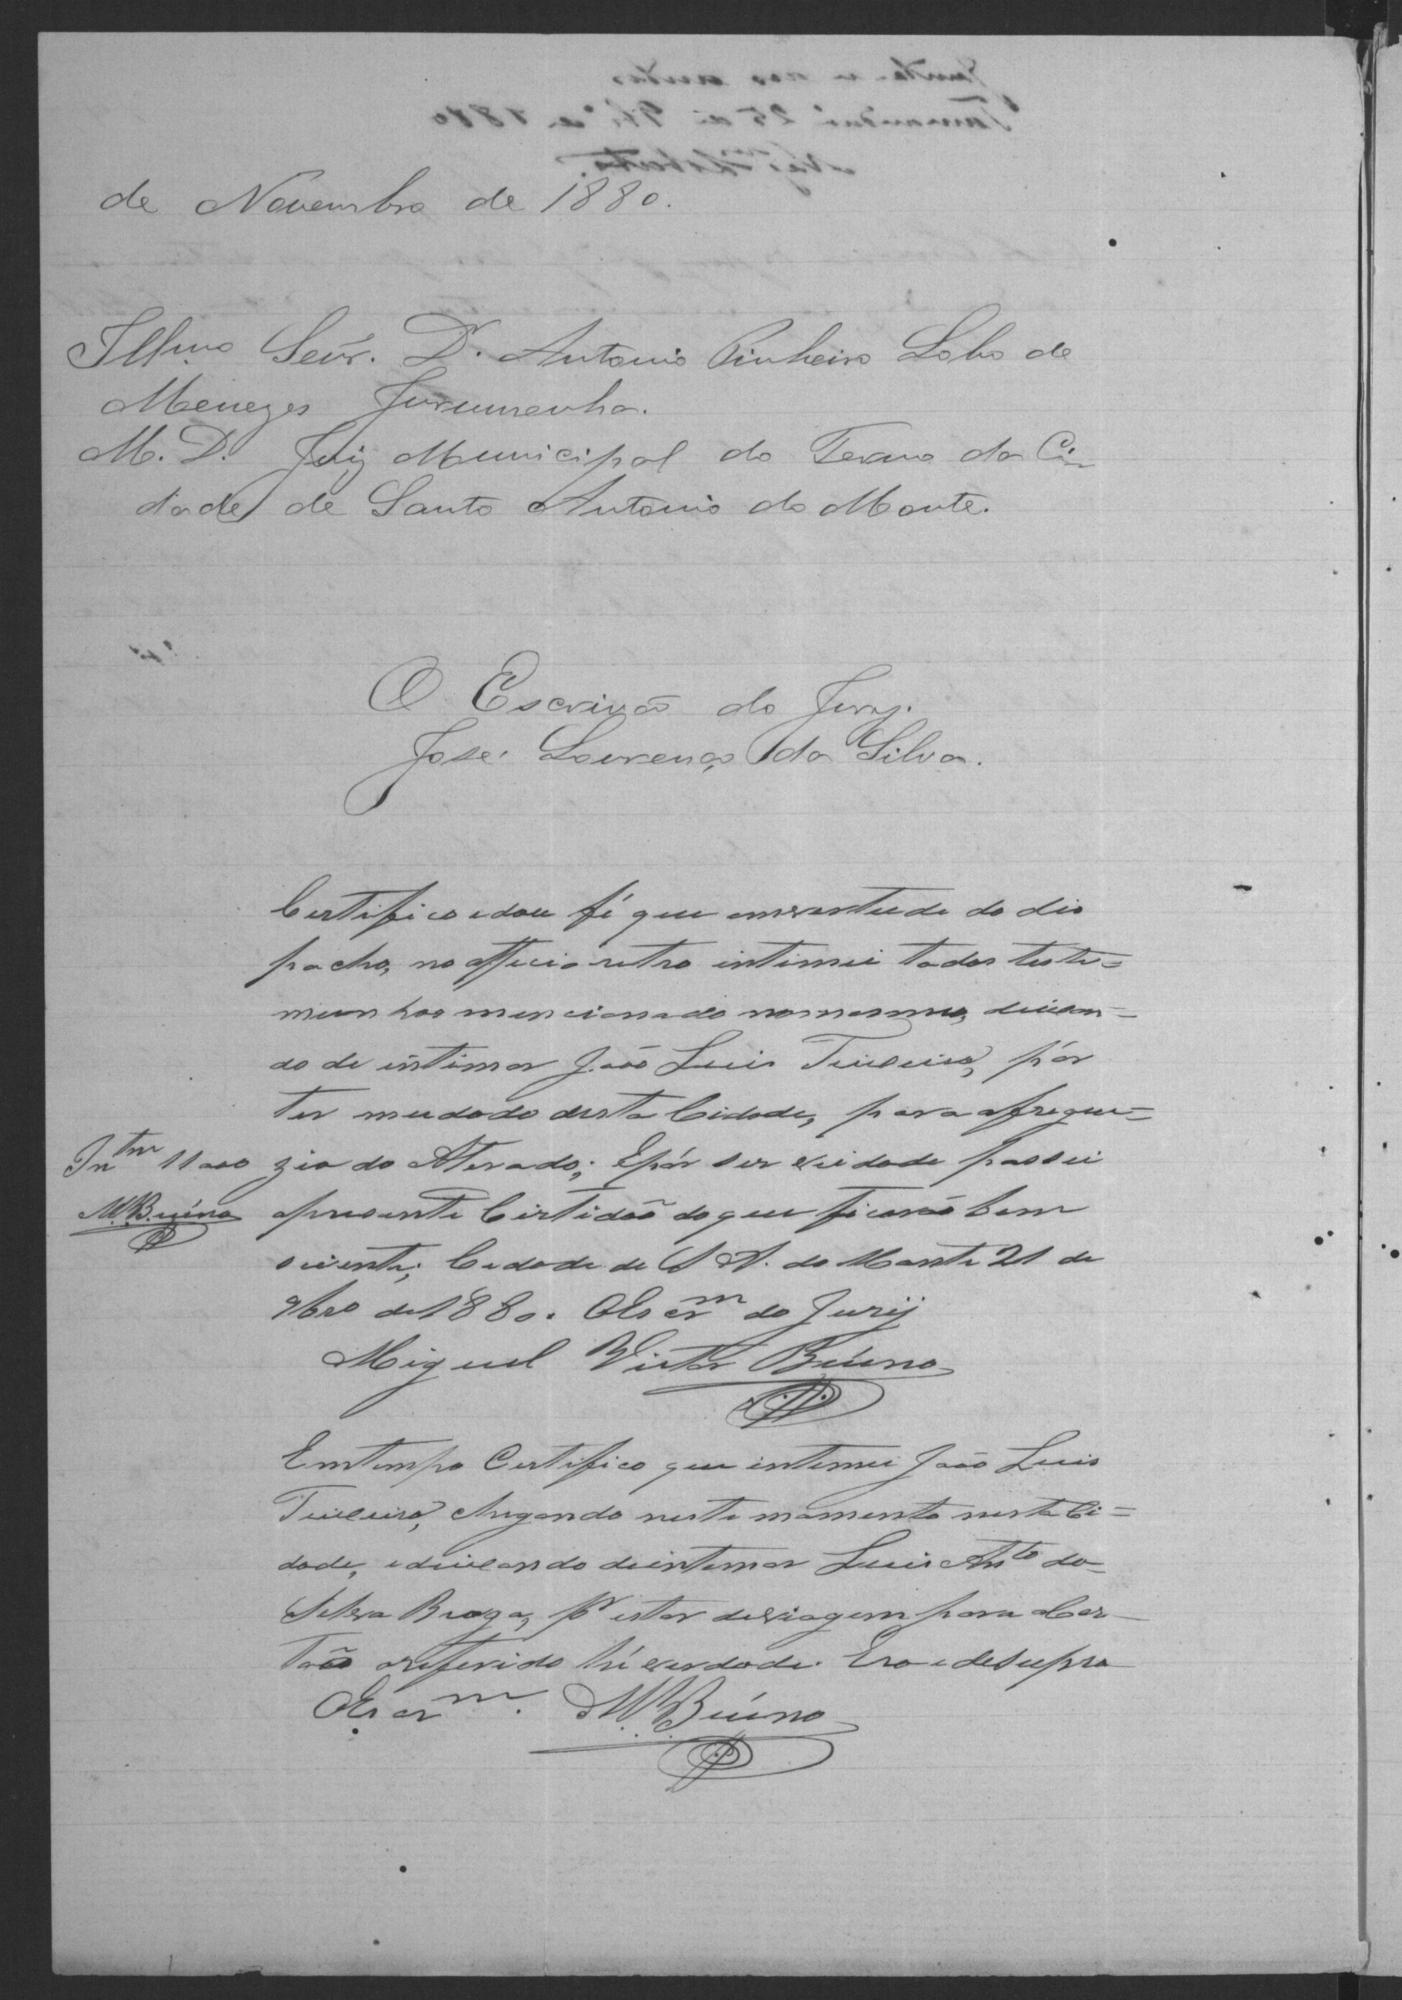 de Novembro de 1880.
Illmo Señr. Dr. Antonio Pinheiro Lobo de
Menezes Jurumenha.
M. D. Juiz Municipal do Termo da Ci
dade de Santo Antonio do Monte.
O Escrivão do Jury.
José Lourenço da Silva.
Certifico e dou fé que em vertude do dis
pacho, no officio retro intimei todas teste=
munhas mencionado no mesmo, deixan=
do de intimar João Luis Teixeira, pór
ter mudado desta Cidade, para a fregue=
zia do Aterado; E pór ser verdade passei
apresente Certidão do que ficarão bem
sciente; Cidade de S. A. do Monte 21 de
9bro de 1880. O Escrm do Jurij
Miguel Victor Buéno
Intm 11000
M. Buéno
Em tempo Certifico que intimei João Luis
Teixeira, chegando neste momento nesta Ci=
dade, e deixando de intimar Luis Anto da
Silva Braga, pr estar de viagem para o Cer
tão o referido hé verdade. Era e de supra
O Escrm. M. Buéno